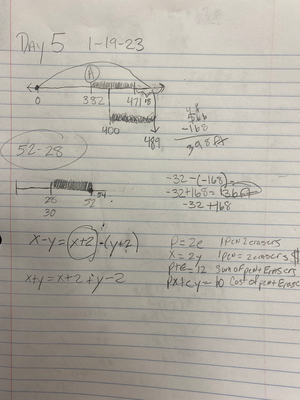 DAY 5 1-19-23
A
0 382 471 18
400 489
-168
398 ft
52-28
28 52 54
30
-32 - (-168) =
-32 + 168 = 136 ft
-32 + 168
x-y = (x+2) - (y+2)
x+y = x+2 + y-2
P = 2e 1 pen 2 erasers
x = 2y 1 pen = 2 erasers $
p+e = 12 Sum of pen + Erasers
px + ey = 10 Cost of pen + Erasers